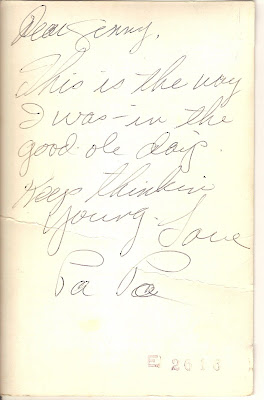 Dear Jenny,
This is the way
I was-in the
good ole days.
Keep thinkin
Young. Love
Pa Pa
E 2616